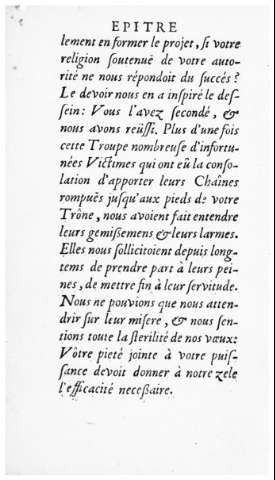 EPITRE
lement en former le projet, ſi votre
religion ſoutenuë de votre auto-
rité ne nous répondoit du ſuccés ?
Le devoir nous en a inſpiré le deſ-
ſein : Vous l'avez ſecondé, &
nous avons reüſſi. Plus d'une fois
cette Troupe nombreuſe d'infortu-
nées Victimes qui ont eû la conſo-
lation d'apporter leurs Chaînes
rompuës juſqu'aux pieds de votre
Trône, nous avoient fait entendre
leurs gemiſſemens & leurs larmes.
Elles nous ſollicitoient depuis long-
tems de prendre part à leurs pei-
nes, de mettre fin à leur ſervitude.
Nous ne pouvions que nous atten-
drir ſur leur miſere, & nous ſen-
tions toute la ſterilité de nos vœux :
Vôtre pieté jointe à votre puiſ-
ſance devoit donner à notre zele
l'efficacité neceſſaire.